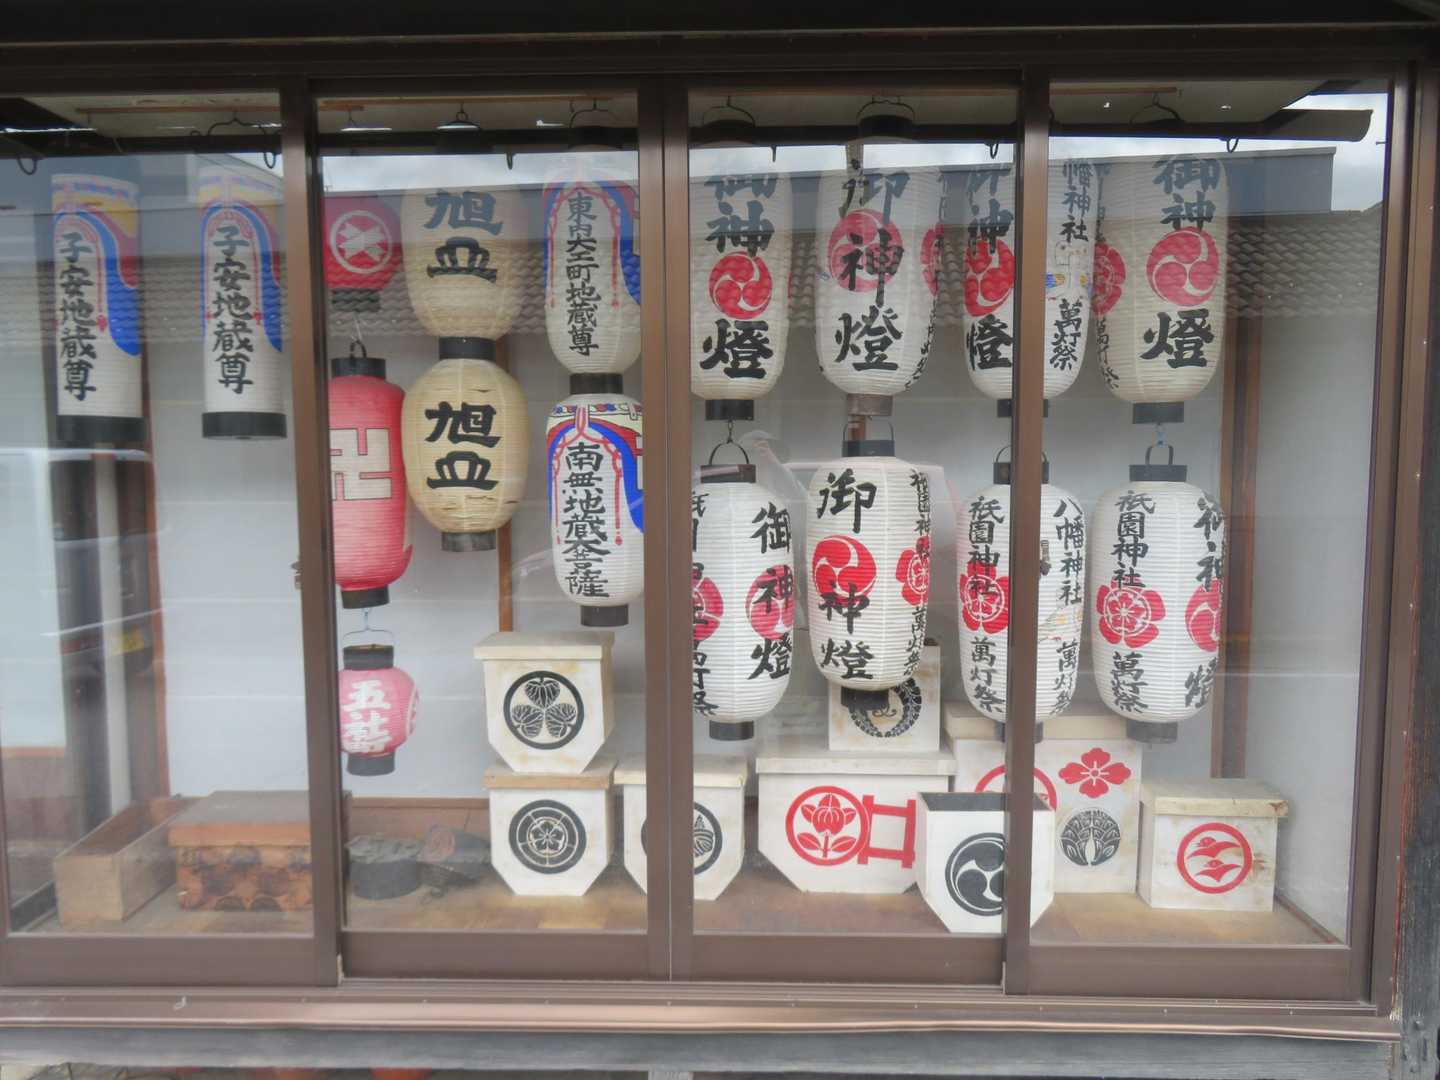 子安地蔵尊
子安地蔵尊
旭皿
旭皿
五社
東内大工町地蔵尊
南無地蔵大菩薩
御神燈
御神燈
御神燈
幡神社
萬灯祭
御神燈
御神燈
御神燈
祇園神社
萬灯祭
八幡神社
萬灯祭
祇園神社
萬灯祭